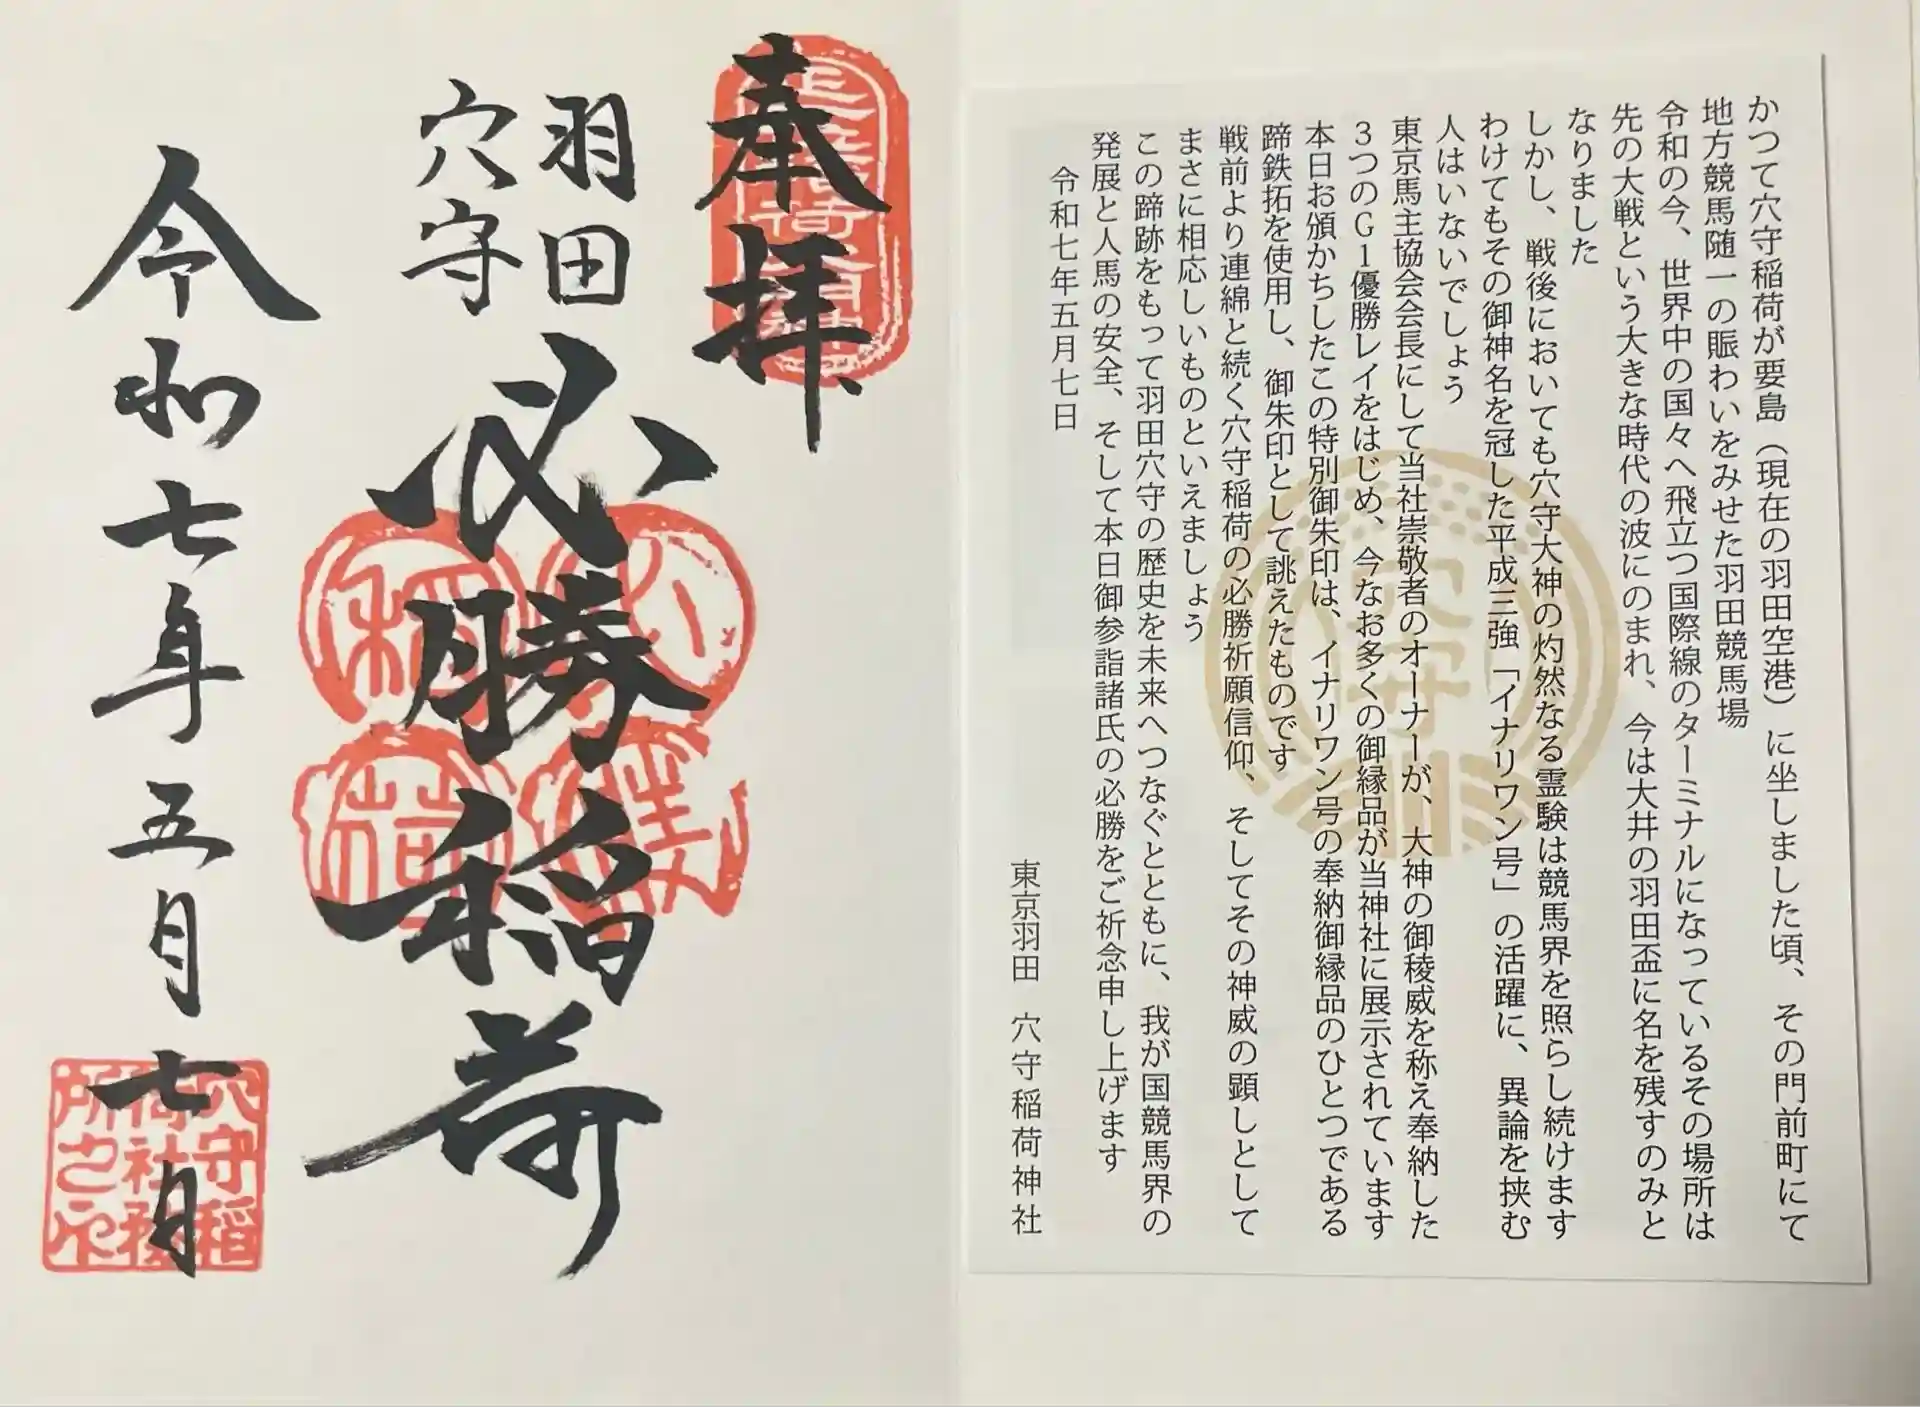 かつて穴守稲荷が要島（現在の羽田空港）に坐しました頃、その門前町にて
地方競馬随一の賑わいをみせた羽田競馬場
令和の今、世界中の国々へ飛立つ国際線のターミナルになっているその場所は
先の大戦という大きな時代の波にのまれ、今は大井の羽田盃に名を残すのみと
なりました
しかし、戦後においても穴守大神の灼然なる霊験は競馬界を照らし続けます
わけてもその御神名を冠した平成三強「イナリワン号」の活躍に、異論を挟む
人はいないでしょう
東京馬主協会会長にして当社崇敬者のオーナーが、大神の御稜威を称え奉納した
3つのG1優勝レイをはじめ、今なお多くの御縁品が当神社に展示されています
本日お頒かちしたこの特別御朱印は、イナリワン号の奉納御縁品のひとつである
蹄鉄拓を使用し、御朱印として誂えたものです
戦前より連綿と続く穴守稲荷の必勝祈願信仰、そしてその神威の顕しとして
まさに相応しいものといえましょう
この蹄跡をもって羽田穴守の歴史を未来へつなぐとともに、我が国競馬界の
発展と人馬の安全、そして本日御参詣諸氏の必勝をご祈念申し上げます
令和七年五月七日
東京羽田 穴守稲荷神社
穴守
奉拝
羽田
穴守
必勝稲荷
必勝
稲荷
令和七年五月七日
穴守稲
荷社務
所之印